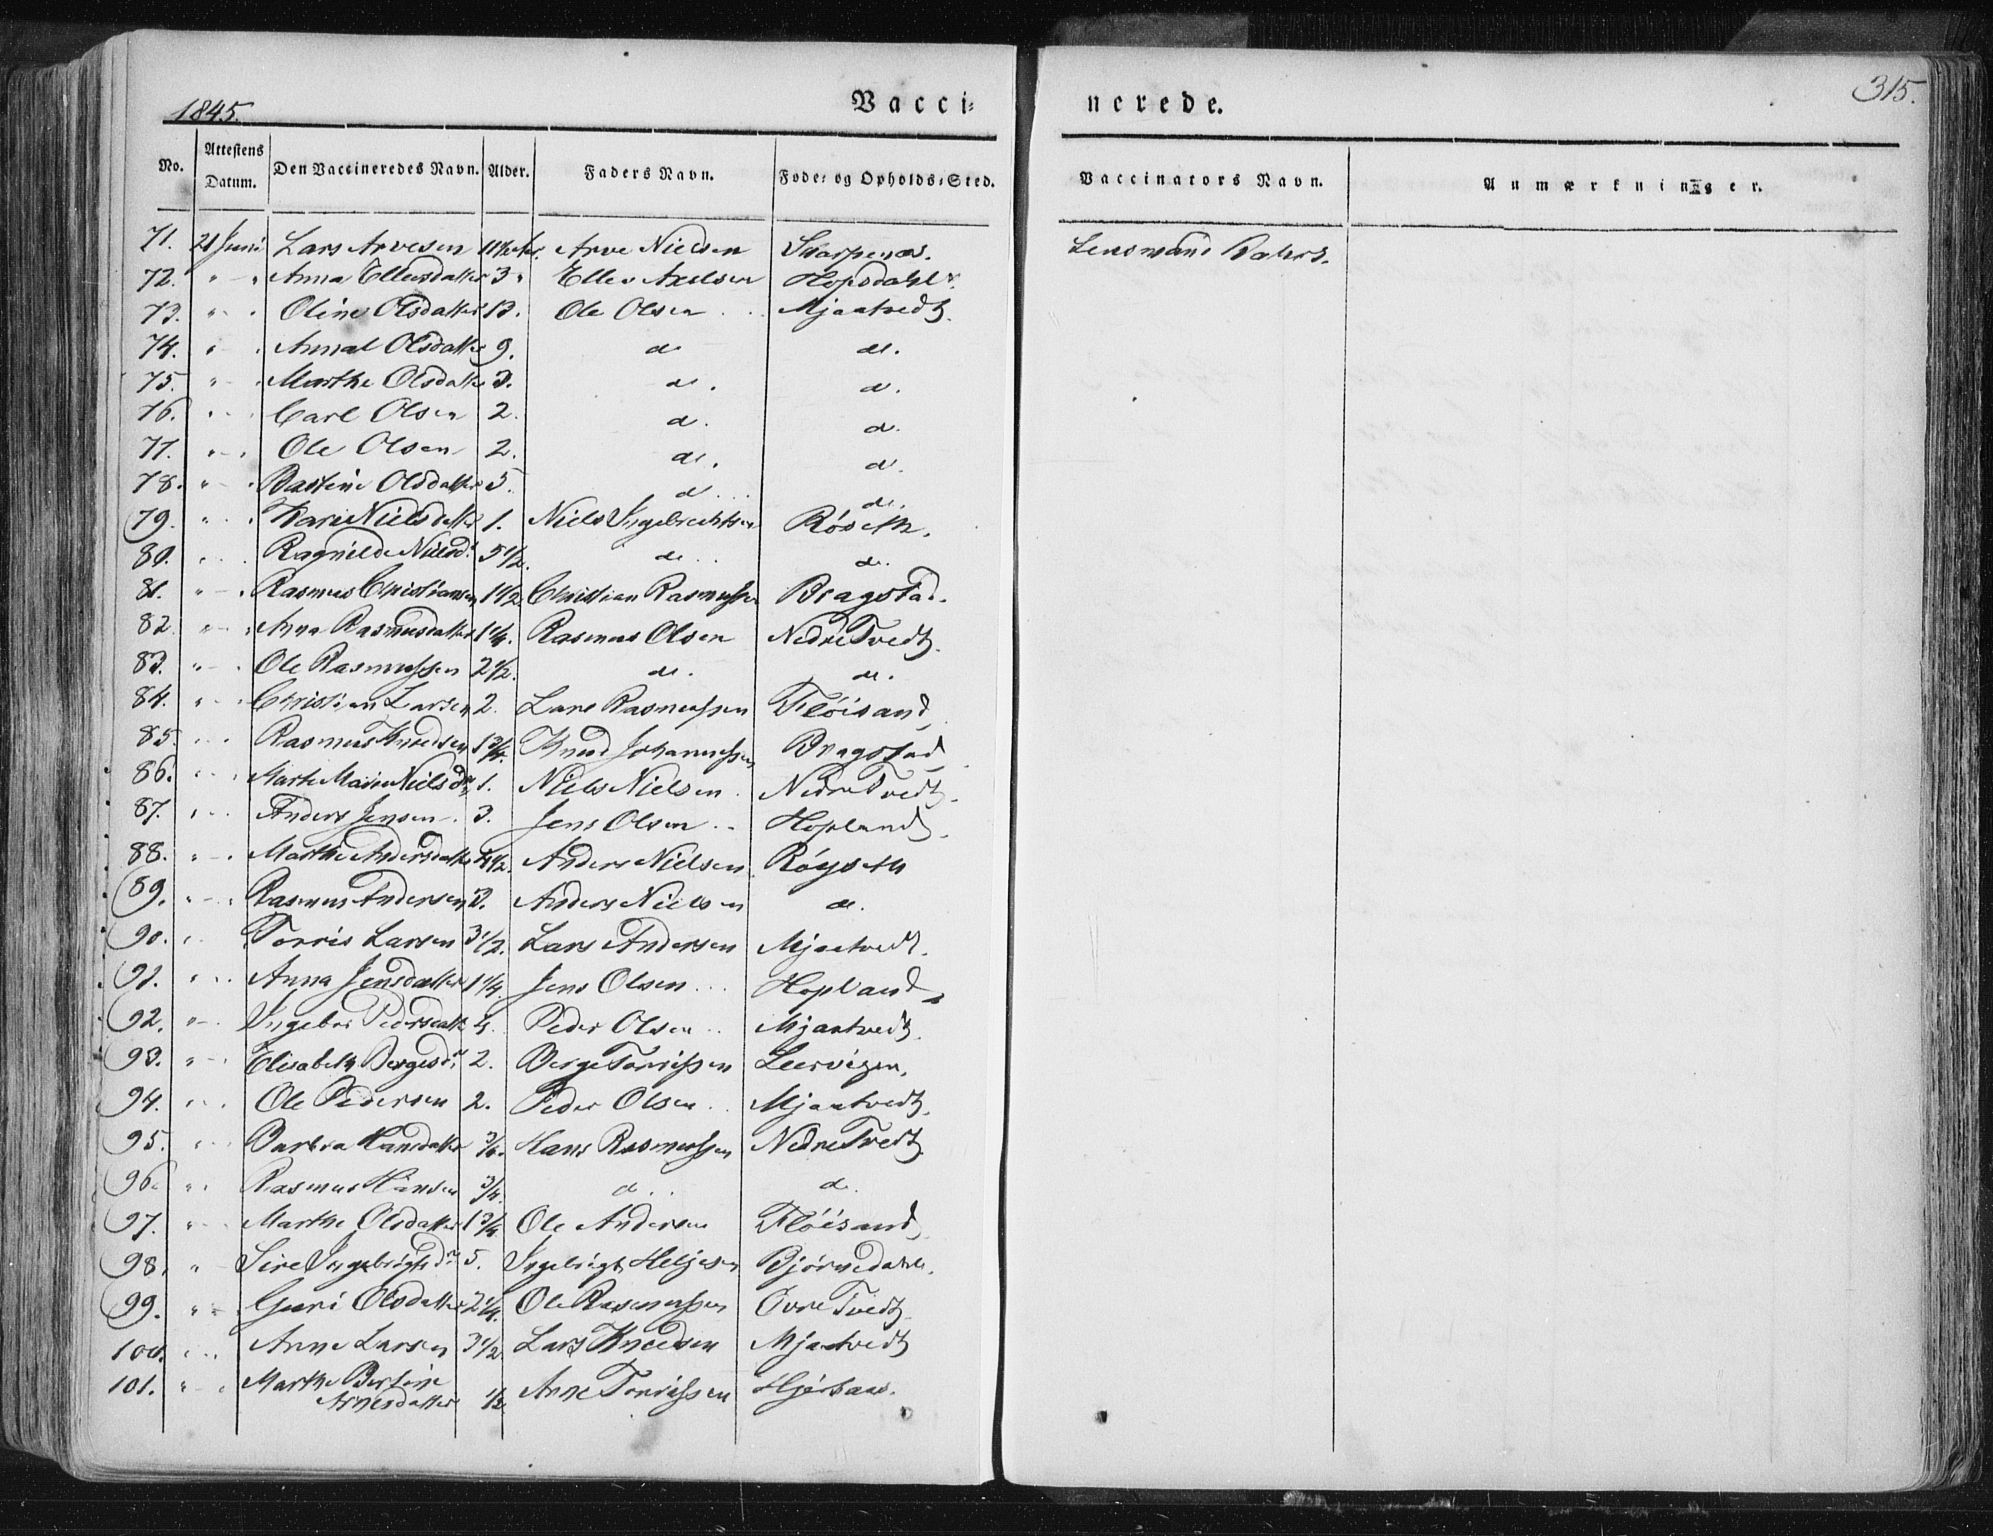 1845.
Vacci-
nerede.
315.
No. Attestens Datum. Den Vaccineredes Navn. Alder. Faders Navn. Føde- og Opholds-Sted. Vaccinators Navn. Anmærkninger.
71. 21 Juni Lars Arvesen Arve Nielsen Skarpenæs. Lensmand
72. " - " Anna Ellensdatter 3 " Ellev Axelsen Hopsdahl.
73. " - " Oline Olsdatter 13. Ole Olsen Mjaatvedt.
74. " - " Anna Olsdatter 9. d d.
75. " - " Marthe Olsdatter 3. d. d.
76. " - " Carl Olsen 2. d. d.
77. " - " Ole Olsen 2. d. d.
78. " - " Bastine Olsdatter 5. d d.
79. " - " Kari Nielsdatter 1. Niels Ingebrechtsen Röseth.
80. " - " Ragnilde Nielsd. 5 1/2. d. d.
81. " - " Rasmus Christiansen 1 1/2 Christian Rasmussen Bragstad.
82. " - " Anna Rasmusdatter 1 1/4. Rasmus Olsen Nedre Tvedt.
83. " - " Ole Rasmussen 2 1/2. d. d.
84. " - " Christian Larsen 2. Lars Rasmussen Flöisand,
85. " - " Rasmus Knudsen 1 3/4. Knud Johannessen Bragstad
86. " - " Marte Marie Nielsdr. 1. Niels Nielsen Nedre Tvedt.
87. " - " Anders Jensen 3. Jens Olsen Hopland.
88. " - " Marthe Andersdatter Anders Nielsen Röyseth
89. " - " Rasmus Andersen 3. Anders Nielsen d.
90. " - " Torris Larsen 3 1/2. Lars Andersen Mjaatvedt.
91. " - " Anna Jensdatter 1 1/4. Jens Olsen Hopland
92. " - " Ingebor Pedersdatter 4. Peder Olsen Mjaatvedt.
93. " - " Elisabeth Bergesdr. 2. Berge Torrissen Leervigen.
94. " - " Ole Pedersen 2. Peder Olsen Mjaatvedt.
95. " - " Barbra Hansdatter Hans Rasmussen Nedre Tvedt.
96. " - " Rasmus Hansen 3/4. d d.
97. " - " Marthe Olsdatter 1 3/4. Ole Andersen Flöisand,
98. " - " Sire Ingebrigtsdr. 5. Ingebrigt Heljesen Björnedahl.
99. " - " Guri Olsdatter 2 1/4. Ole Rasmussen Övre Tvedt.
100. " - " Anne Larsen 3 1/2. Lars Knudsen Mjaatvedt
101. " - " Marthe Bertine
Arnesdatter 1/2 Arne Torrissen